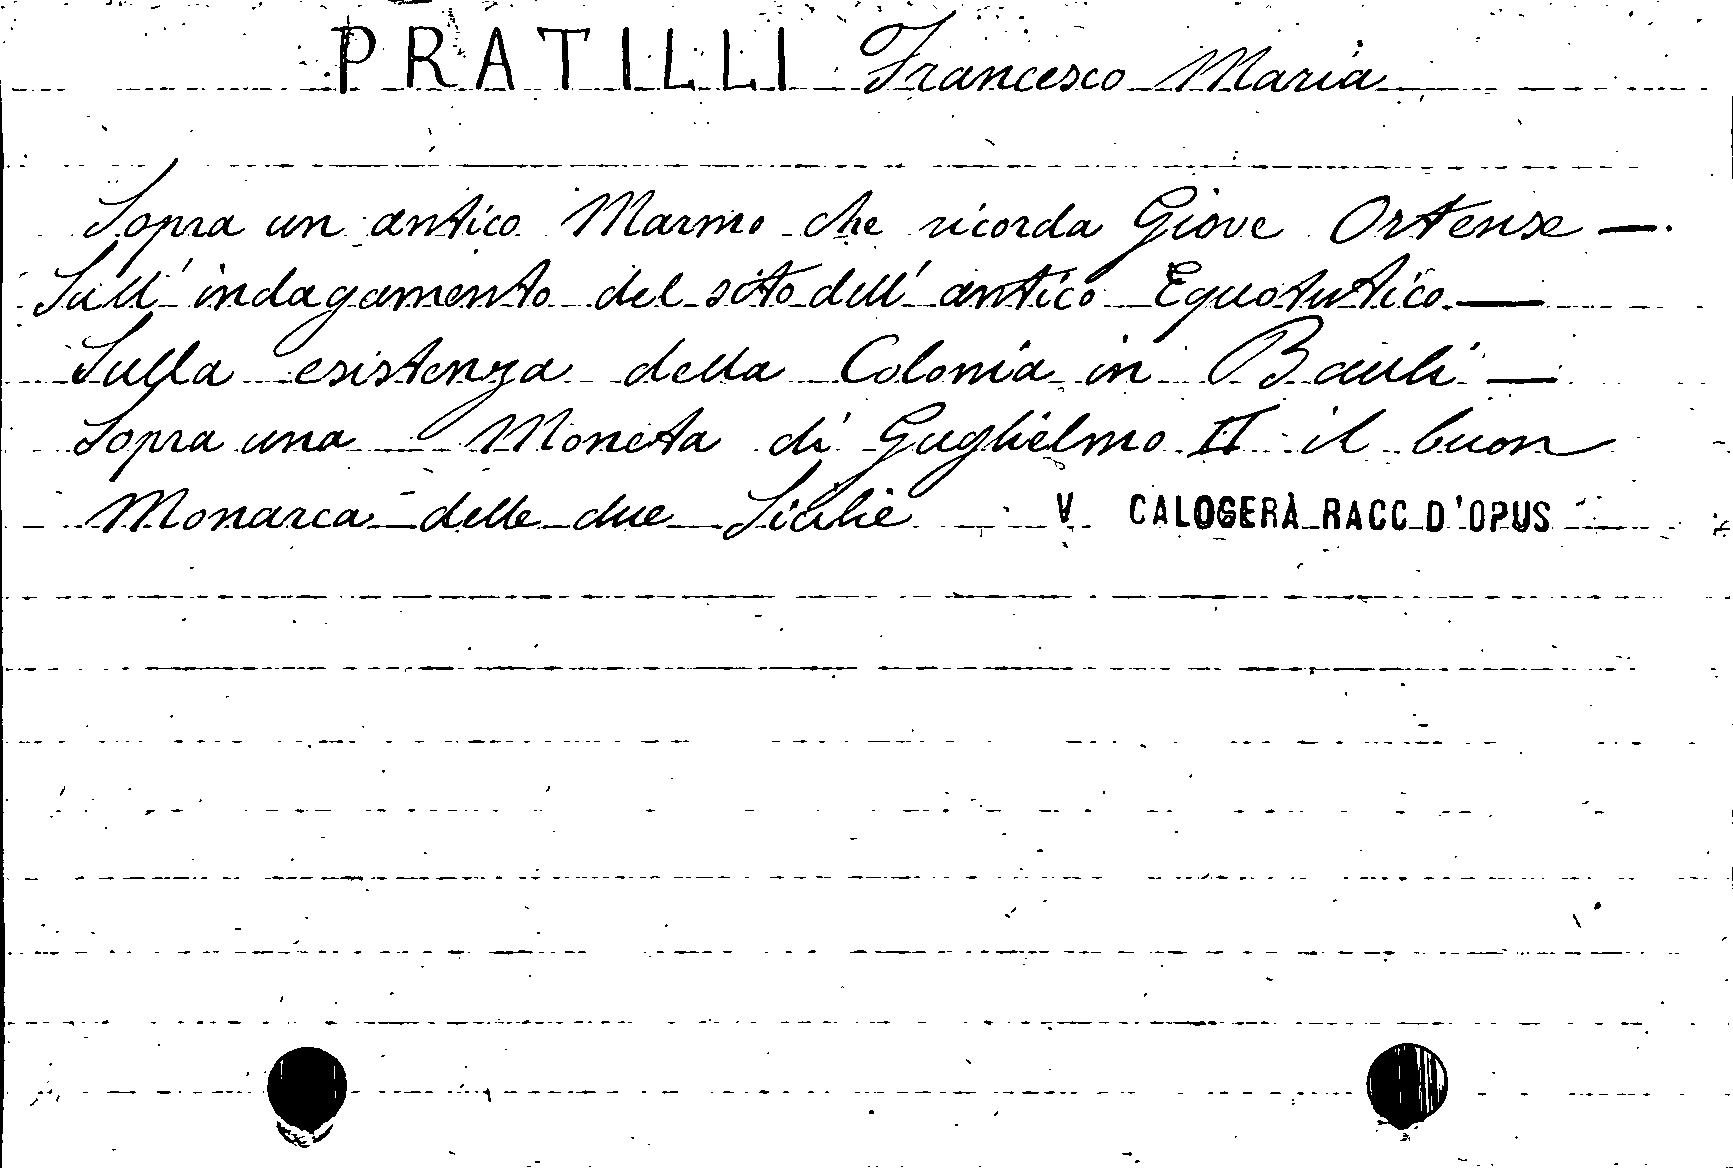 PRATILLI Francesco Maria
Sopra un antico Marmo che ricorda Giove Ortense —.
Sull' indagamento del sito dell' antico Equotutico. —
Sulla esistenza della Colonia in Bauli —
Sopra una Moneta di Guglielmo II il buon
Monarca delle due Sicilie V CALOGERÀ RACC D'OPUS